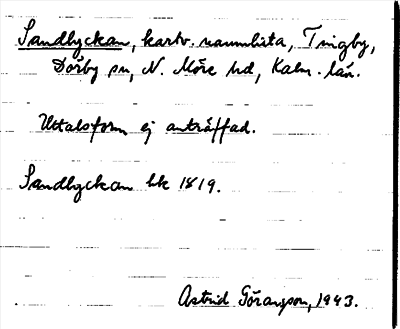 Sandlyckan, kartv. namnlista, Tingby,
Dörby sn, N. Möre hd, Kalm. län.
Uttalsform ej anträffad.
Sandlyckan hk 1819.
Astrid Göransson, 1943.